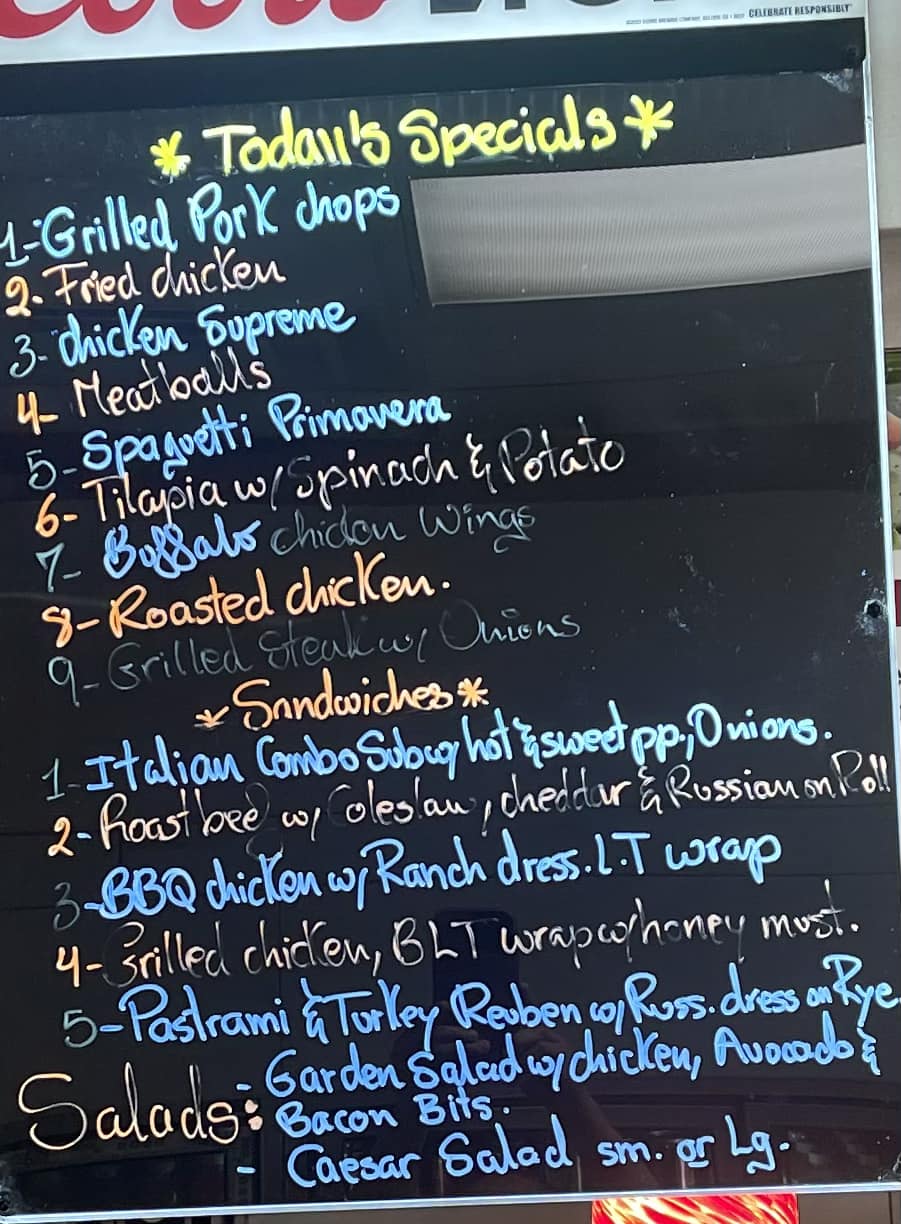 CELEBRATE RESPONSIBLY
* Today's Specials *
1- Grilled Pork chops
2. Fried chicken
3- chicken Supreme
4- Meatballs
5- Spaguetti Primavera
6- Tilapia w/ Spinach & Potato
7- Buffalo chicken Wings
8- Roasted chicken.
9- Grilled Steak w/ Onions
* Sandwiches *
1- Italian Combo Sub w/ hot & sweet pp., Onions.
2- Roast beef w/ Coleslaw, cheddar & Russian on Roll
3- BBQ chicken w/ Ranch dress. L.T wrap
4- Grilled chicken, BLT wrap w/ honey must.
5- Pastrami & Turkey Reuben w/ Russ. dress on Rye
Salads: - Garden Salad w/ chicken, Avocado &
Bacon Bits.
- Caesar Salad sm. or Lg.